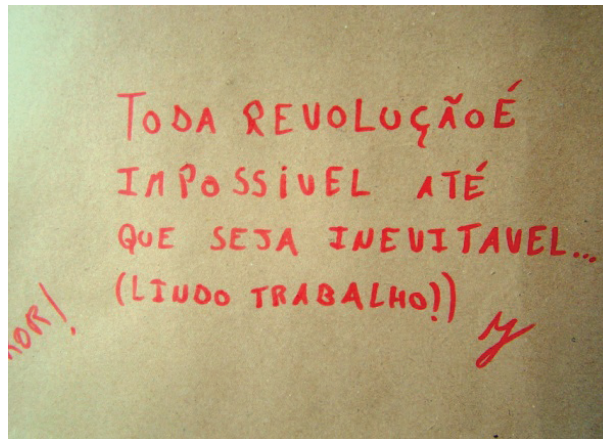 TODA REVOLUÇÃO É
IMPOSSÍVEL ATÉ
QUE SEJA INEVITAVEL...
(LINDO TRABALHO!)